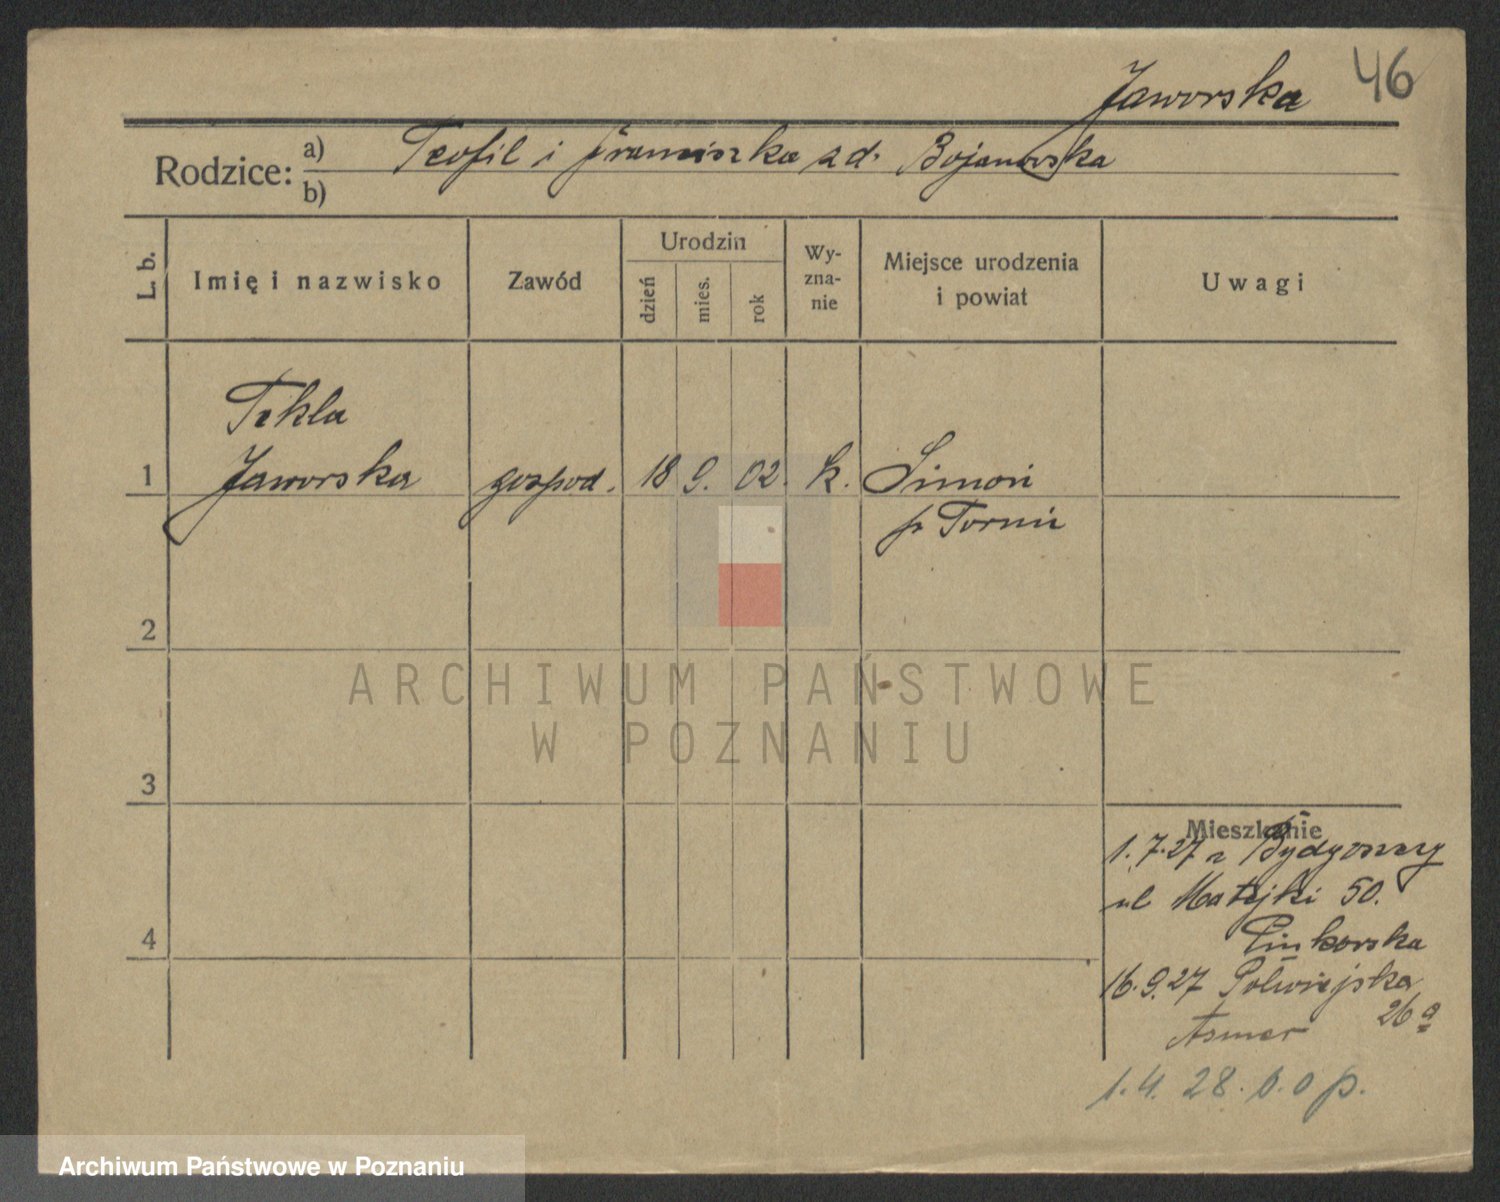 Jaworska 46
Rodzice: a) Teofil i Franciszka zd. Bojanowska
b)
L. b. Imię i nazwisko Zawód Urodzin dzień mies. rok Wy-zna-nie Miejsce urodzenia i powiat Uwagi
Tekla
1 Jaworska gospod. 18 9. 02. k. Simoń
p Toruń
2
ARCHIWUM PAŃSTWOWE
W POZNANIU
3
Mieszkanie
1.7.27 z Bydgoszczy
ul Matejki 50.
Pinkorska
4
16.9.27 Półwiejska
26a
Asmer
1.4.28.
Archiwum Państwowe w Poznaniu